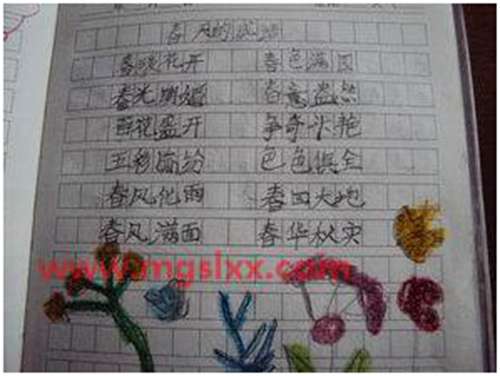 春天的成语
春暖花开 春色满园
春光明媚 春意盎然
鲜花盛开 争奇斗艳
五彩缤纷 色色俱全
春风化雨 春回大地
春风满面 春华秋实
www.mgslxx.com